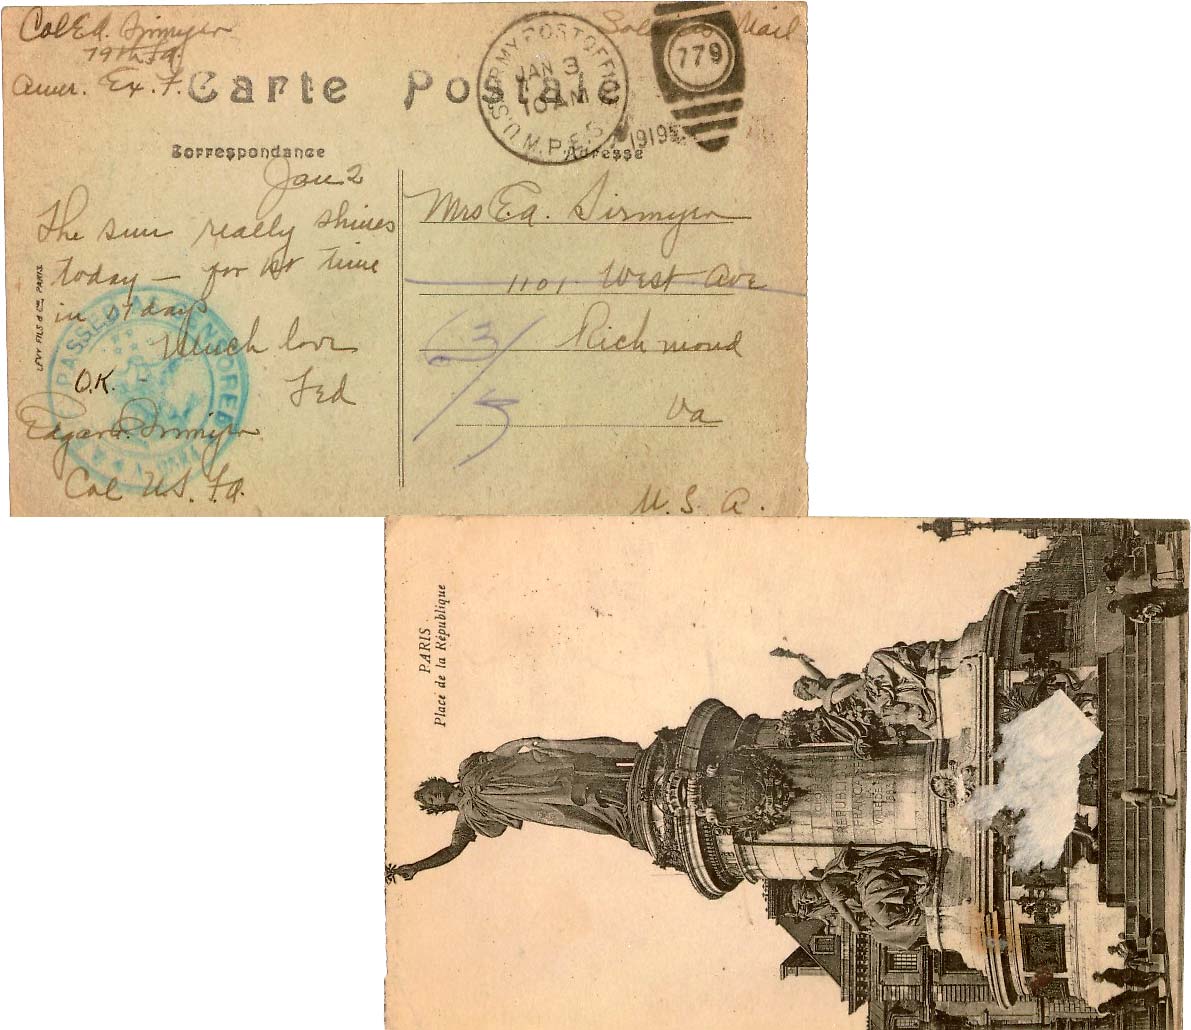 Col Ed. Sirmyer
79th F.A.
Amer. Ex. F.
Soldiers Mail
Carte Postale
U.S. ARMY POST OFFICE
M.P.E.S.
JAN 3
10 AM
1919
779
Correspondance
Adresse
Jan 2
The sun really shines
today — for 1st time
in 17 days
Much love
Ted
O.K.
Edgar A. Sirmyer
Col U.S. F.A.
PASSED AS CENSORED
LEVY FILS & Cie PARIS
Mrs E.A. Sirmyer
1101 West Ave
Richmond
Va
U. S. A.
PARIS
Place de la République